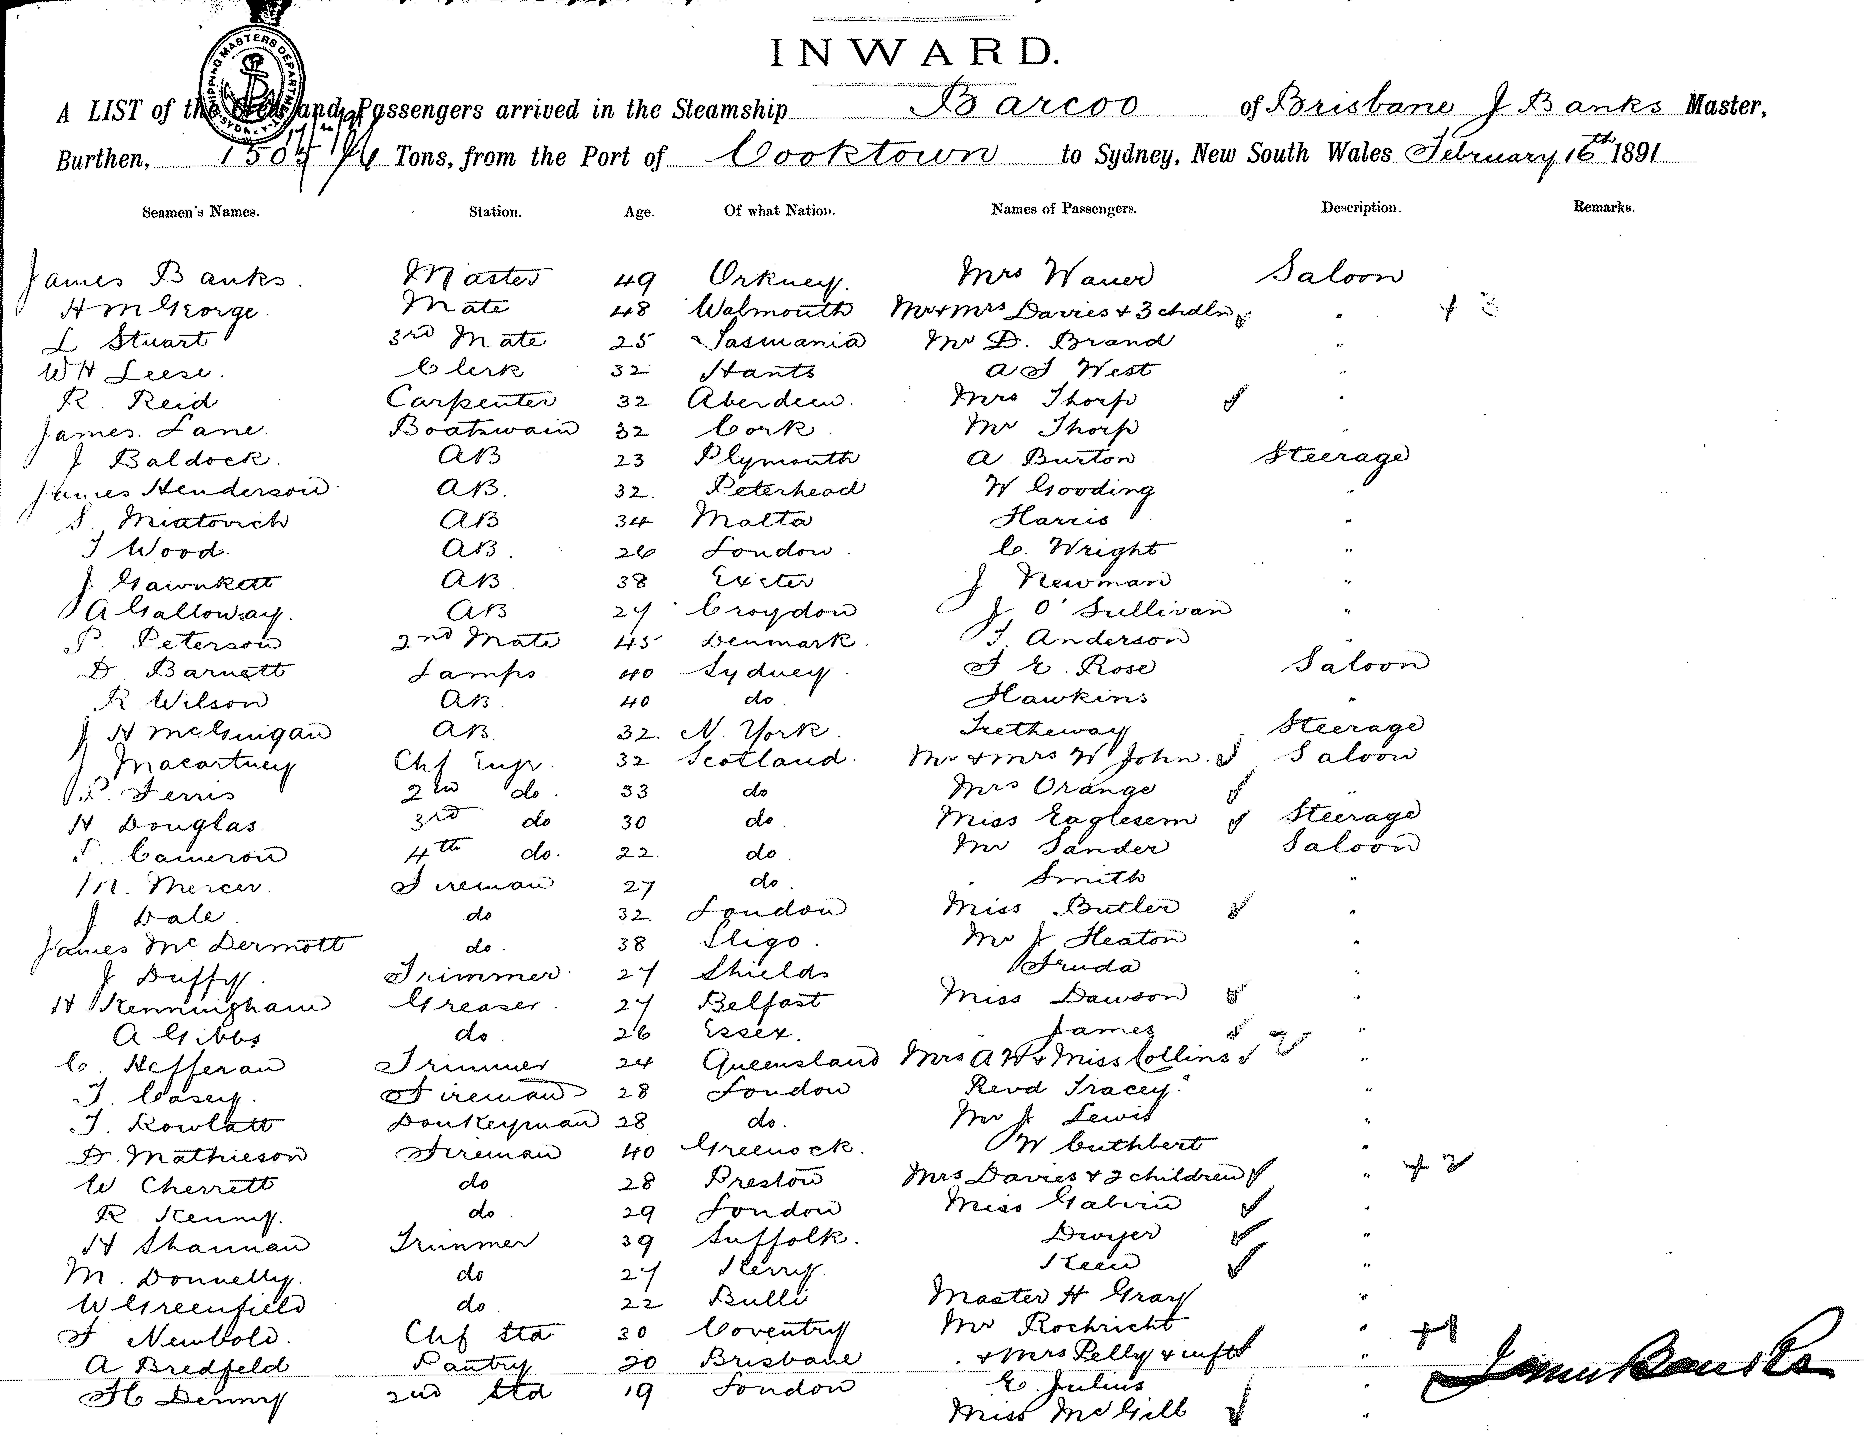 INWARD.
A LIST of the Crew and Passengers arrived in the Steamship Barcoo of Brisbane J Banks Master,
Burthen, 1505 Tons, from the Port of Cooktown to Sydney, New South Wales February 16th 1891
Seamen's Names. Station. Age. Of what Nation. Names of Passengers. Description. Remarks.
James Banks. Master 49 Orkney. Mrs Waner Saloon
H McGeorge. Mate 48 Walmouth Mr & Mrs Davies & 3 chdln " + 3
L Stuart 3rd Mate 25 Tasmania Mr D. Brand "
WH Leese. Clerk 32 Hants A J West "
R. Reid Carpenter 32 Aberdeen. Mrs Thorp "
James Lane. Boatswain 32 Cork Mr Thorp "
J Baldock. AB 23 Plymouth A Burton Steerage
James Henderson AB. 32. Peterhead W Gooding "
S. Miatovich AB 34 Malta Harris "
T Wood. AB. 26 London. C. Wright "
J Gawnkett AB 38 Exeter J Newman "
A Galloway. AB 27 Croydon J O'Sullivan "
P. Peterson 2nd Mate 45 Denmark. T. Anderson "
D. Barnett Lamps 40 Sydney. T E. Rose Saloon
R Wilson AB. 40 do Hawkins "
J H McGuigan AB. 32. N. York. Tretheway Steerage
J Macartney Chf Engr. 32 Scotland. Mr & Mrs W John. Saloon
P. Ferris 2nd do. 33 do Mrs Orange "
H Douglas 3rd do 30 do. Miss Eaglesem Steerage
Cameron 4th do. 22 do Mr Sander Saloon
M. Mercer. Fireman 27 do. Smith "
J Dale. do 32 London Miss Butler "
James McDermott do. 38 Sligo. Mr J Heaton "
J Duffy. Trimmer 27 Shields Fruda "
H Kenningham Greaser. 27 Belfast Miss Dawson "
A Gibbs do 26 Essex. James "
C. Hefferan Trimmer 24 Queensland Mrs A W & Miss Collins 2 "
T. Casey. Fireman 28 London Revd Tracey. "
T. Rowlatt Donkeyman 28 do. Mr J Lewis "
D. Mathieson Fireman 40 Greenock. W Cuthbert "
W Cherrett do 28 Preston Mrs Davies & 2 children " + 2
R Kenny. do 29 London Miss Galvin "
H Shannan Trimmer 39 Suffolk. Dwyer "
M. Donnelly. do 27 Kerry. Keen "
W Greenfield do. 22 Bulli Master H Gray "
F Newbold. Chf Std 30 Coventry Mr Rochricht " +1
A Bredfeld Pantry 20 Brisbane & Mrs Pelly & inft "
H Denny 2nd Std 19 London E Julius "
Miss McGill "
James Banks